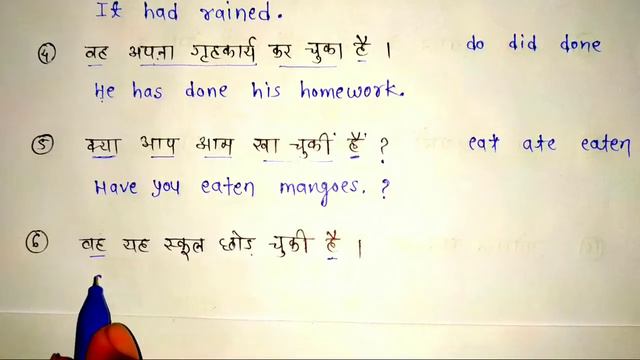 It had rained.
④ वह अपना गृहकार्य कर चुका है । do did done
He has done his homework.
⑤ क्या आप आम खा चुकीं हैं ? eat ate eaten
Have you eaten mangoes. ?
⑥ वह यह स्कूल छोड़ चुकी है ।